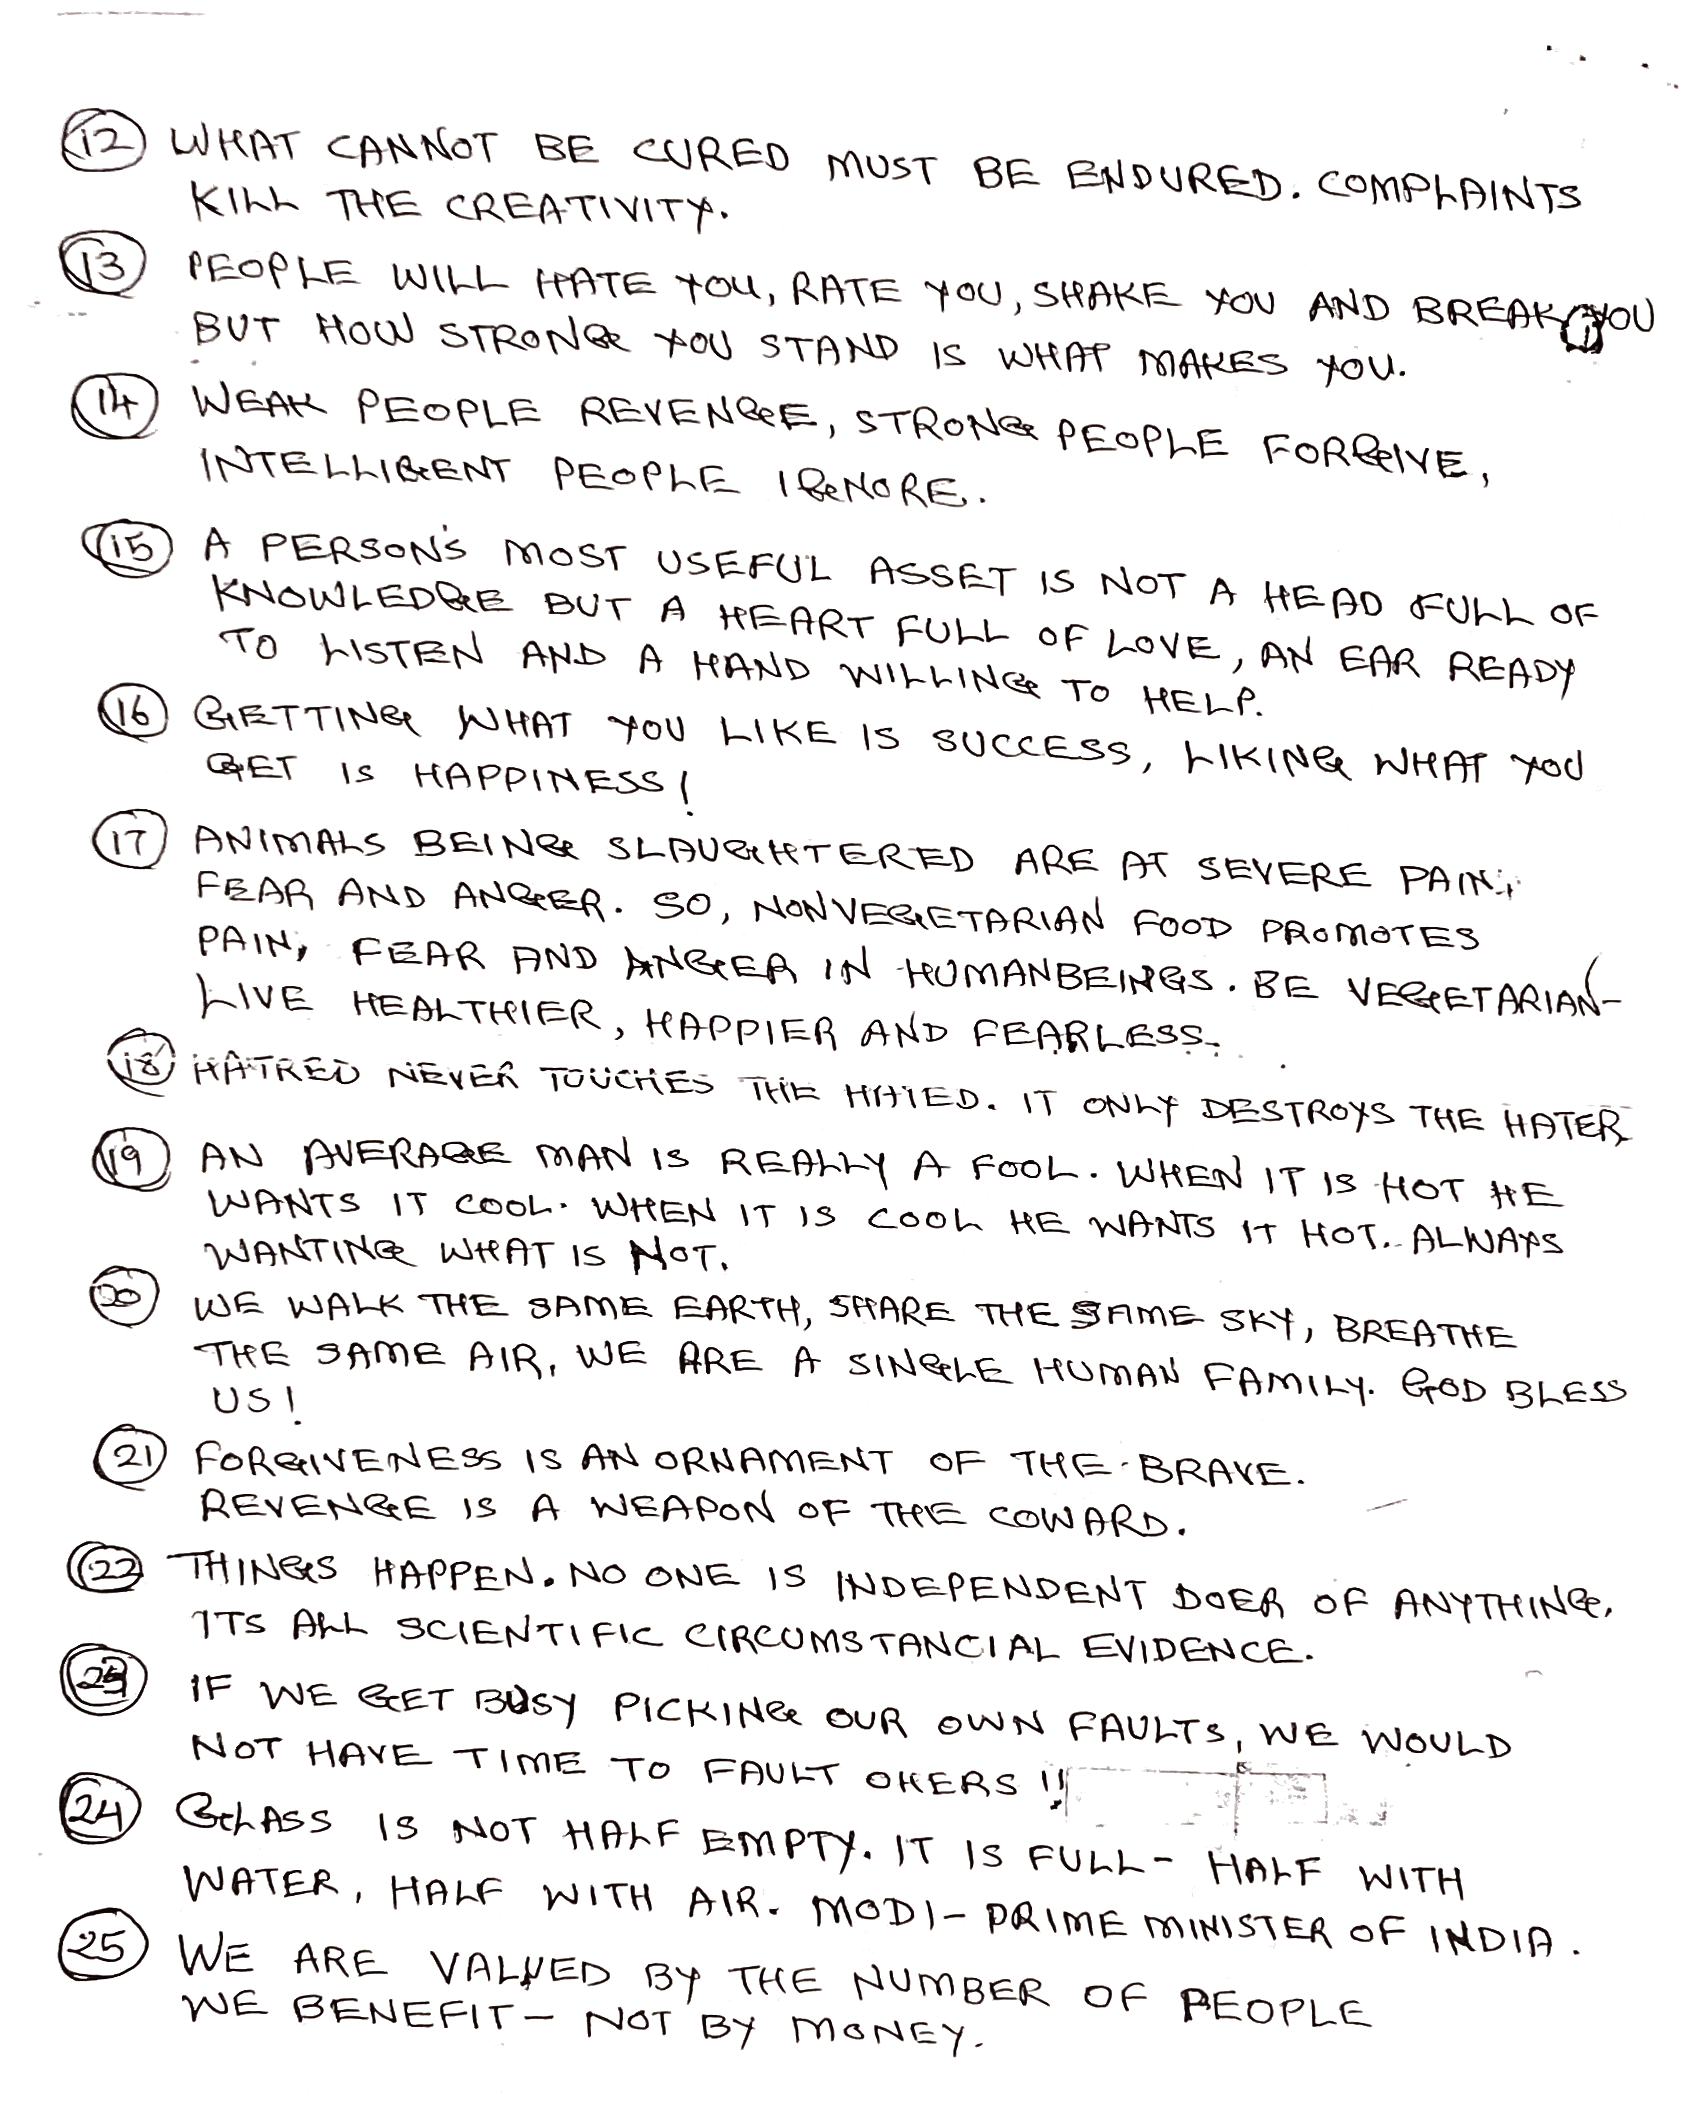 12 WHAT CANNOT BE CURED MUST BE ENDURED. COMPLAINTS
KILL THE CREATIVITY.
13 PEOPLE WILL HATE YOU, RATE YOU, SHAKE YOU AND BREAK YOU
BUT HOW STRONG YOU STAND IS WHAT MAKES YOU.
14 WEAK PEOPLE REVENGE, STRONG PEOPLE FORGIVE,
INTELLIGENT PEOPLE IGNORE.
15 A PERSON'S MOST USEFUL ASSET IS NOT A HEAD FULL OF
KNOWLEDGE BUT A HEART FULL OF LOVE, AN EAR READY
TO LISTEN AND A HAND WILLING TO HELP.
16 GETTING WHAT YOU LIKE IS SUCCESS, LIKING WHAT YOU
GET IS HAPPINESS!
17 ANIMALS BEING SLAUGHTERED ARE AT SEVERE PAIN,
FEAR AND ANGER. SO, NONVEGETARIAN FOOD PROMOTES
PAIN, FEAR AND ANGER IN HUMANBEINGS. BE VEGETARIAN-
LIVE HEALTHIER, HAPPIER AND FEARLESS.
18 HATRED NEVER TOUCHES THE HATED. IT ONLY DESTROYS THE HATER
19 AN AVERAGE MAN IS REALLY A FOOL. WHEN IT IS HOT HE
WANTS IT COOL. WHEN IT IS COOL HE WANTS IT HOT. ALWAYS
WANTING WHAT IS NOT.
20 WE WALK THE SAME EARTH, SHARE THE SAME SKY, BREATHE
THE SAME AIR, WE ARE A SINGLE HUMAN FAMILY. GOD BLESS
US!
21 FORGIVENESS IS AN ORNAMENT OF THE BRAVE.
REVENGE IS A WEAPON OF THE COWARD.
22 THINGS HAPPEN. NO ONE IS INDEPENDENT DOER OF ANYTHING.
ITS ALL SCIENTIFIC CIRCUMSTANCIAL EVIDENCE.
23 IF WE GET BUSY PICKING OUR OWN FAULTS, WE WOULD
NOT HAVE TIME TO FAULT OHERS!!
24 GLASS IS NOT HALF EMPTY. IT IS FULL - HALF WITH
WATER, HALF WITH AIR. MODI - PRIME MINISTER OF INDIA.
25 WE ARE VALUED BY THE NUMBER OF PEOPLE
WE BENEFIT - NOT BY MONEY.